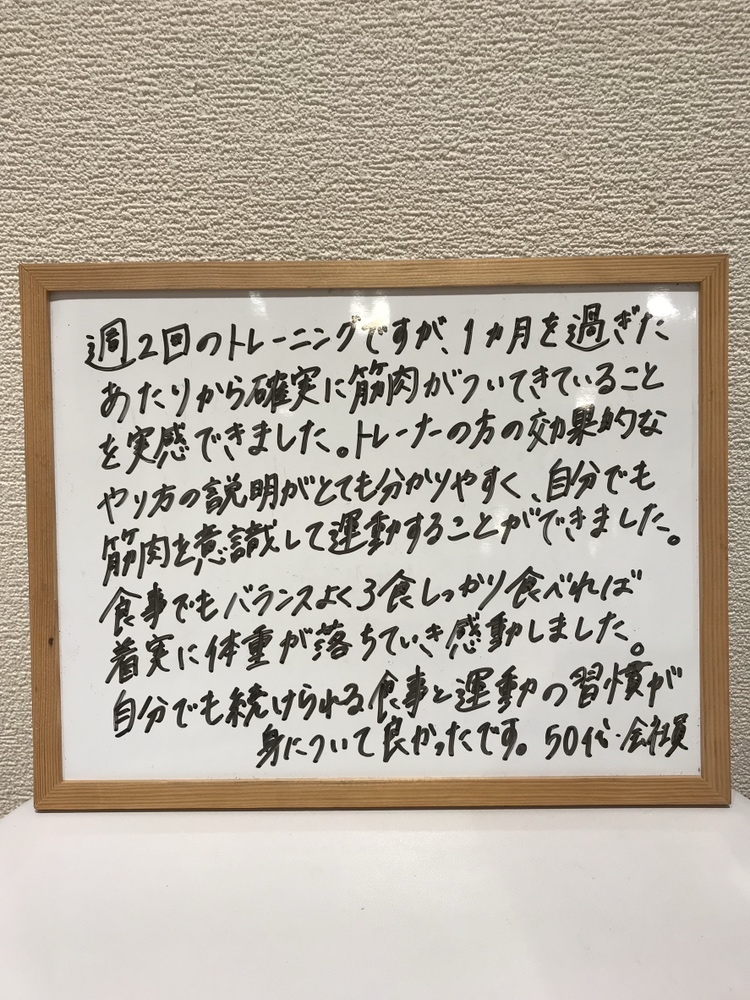 週2回のトレーニングですが、1ヵ月を過ぎた
あたりから確実に筋肉がついてきていること
を実感できました。トレーナーの方の効果的な
やり方の説明がとても分かりやすく、自分でも
筋肉を意識して運動することができました。
食事でもバランスよく3食しっかり食べれば
着実に体重が落ちていき感動しました。
自分でも続けられる食事と運動の習慣が
身について良かったです。50代・会社員